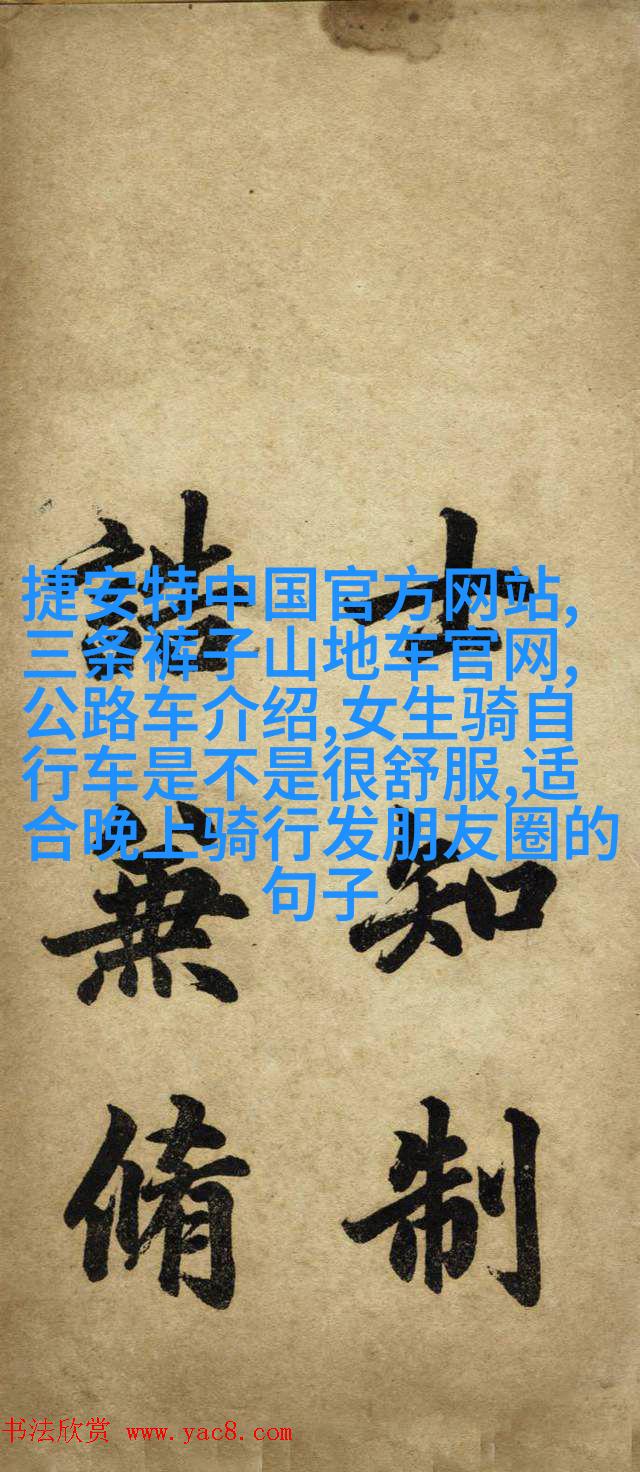 士知制
誥兼脩
捷安特中国官方网站,
三条裤子山地车官网,
公路车介绍,女生骑自
行车是不是很舒服,适
合晚上骑行发朋友圈的
句子
书法欣赏 www.yac8.com